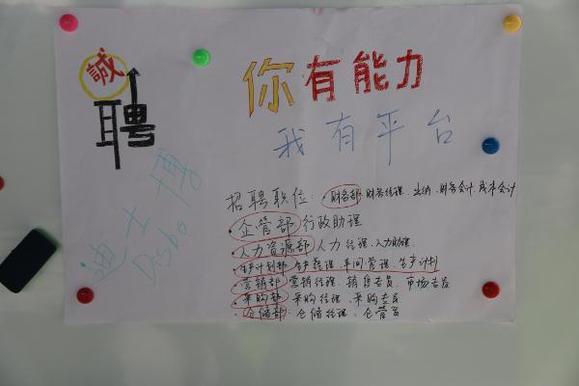 誠
聘
你有能力
我有平台
迪士博
Disbo
招聘职位:·财务部:财务经理、出纳、财务会计、成本会计
·企管部:行政助理
·人力资源部:人力经理、人力助理
·生产计划部:生产经理、车间管理、生产计划
·营销部:营销经理、销售专员、市场专员
·采购部:采购经理、采购专员
·仓储部:仓储经理、仓管员